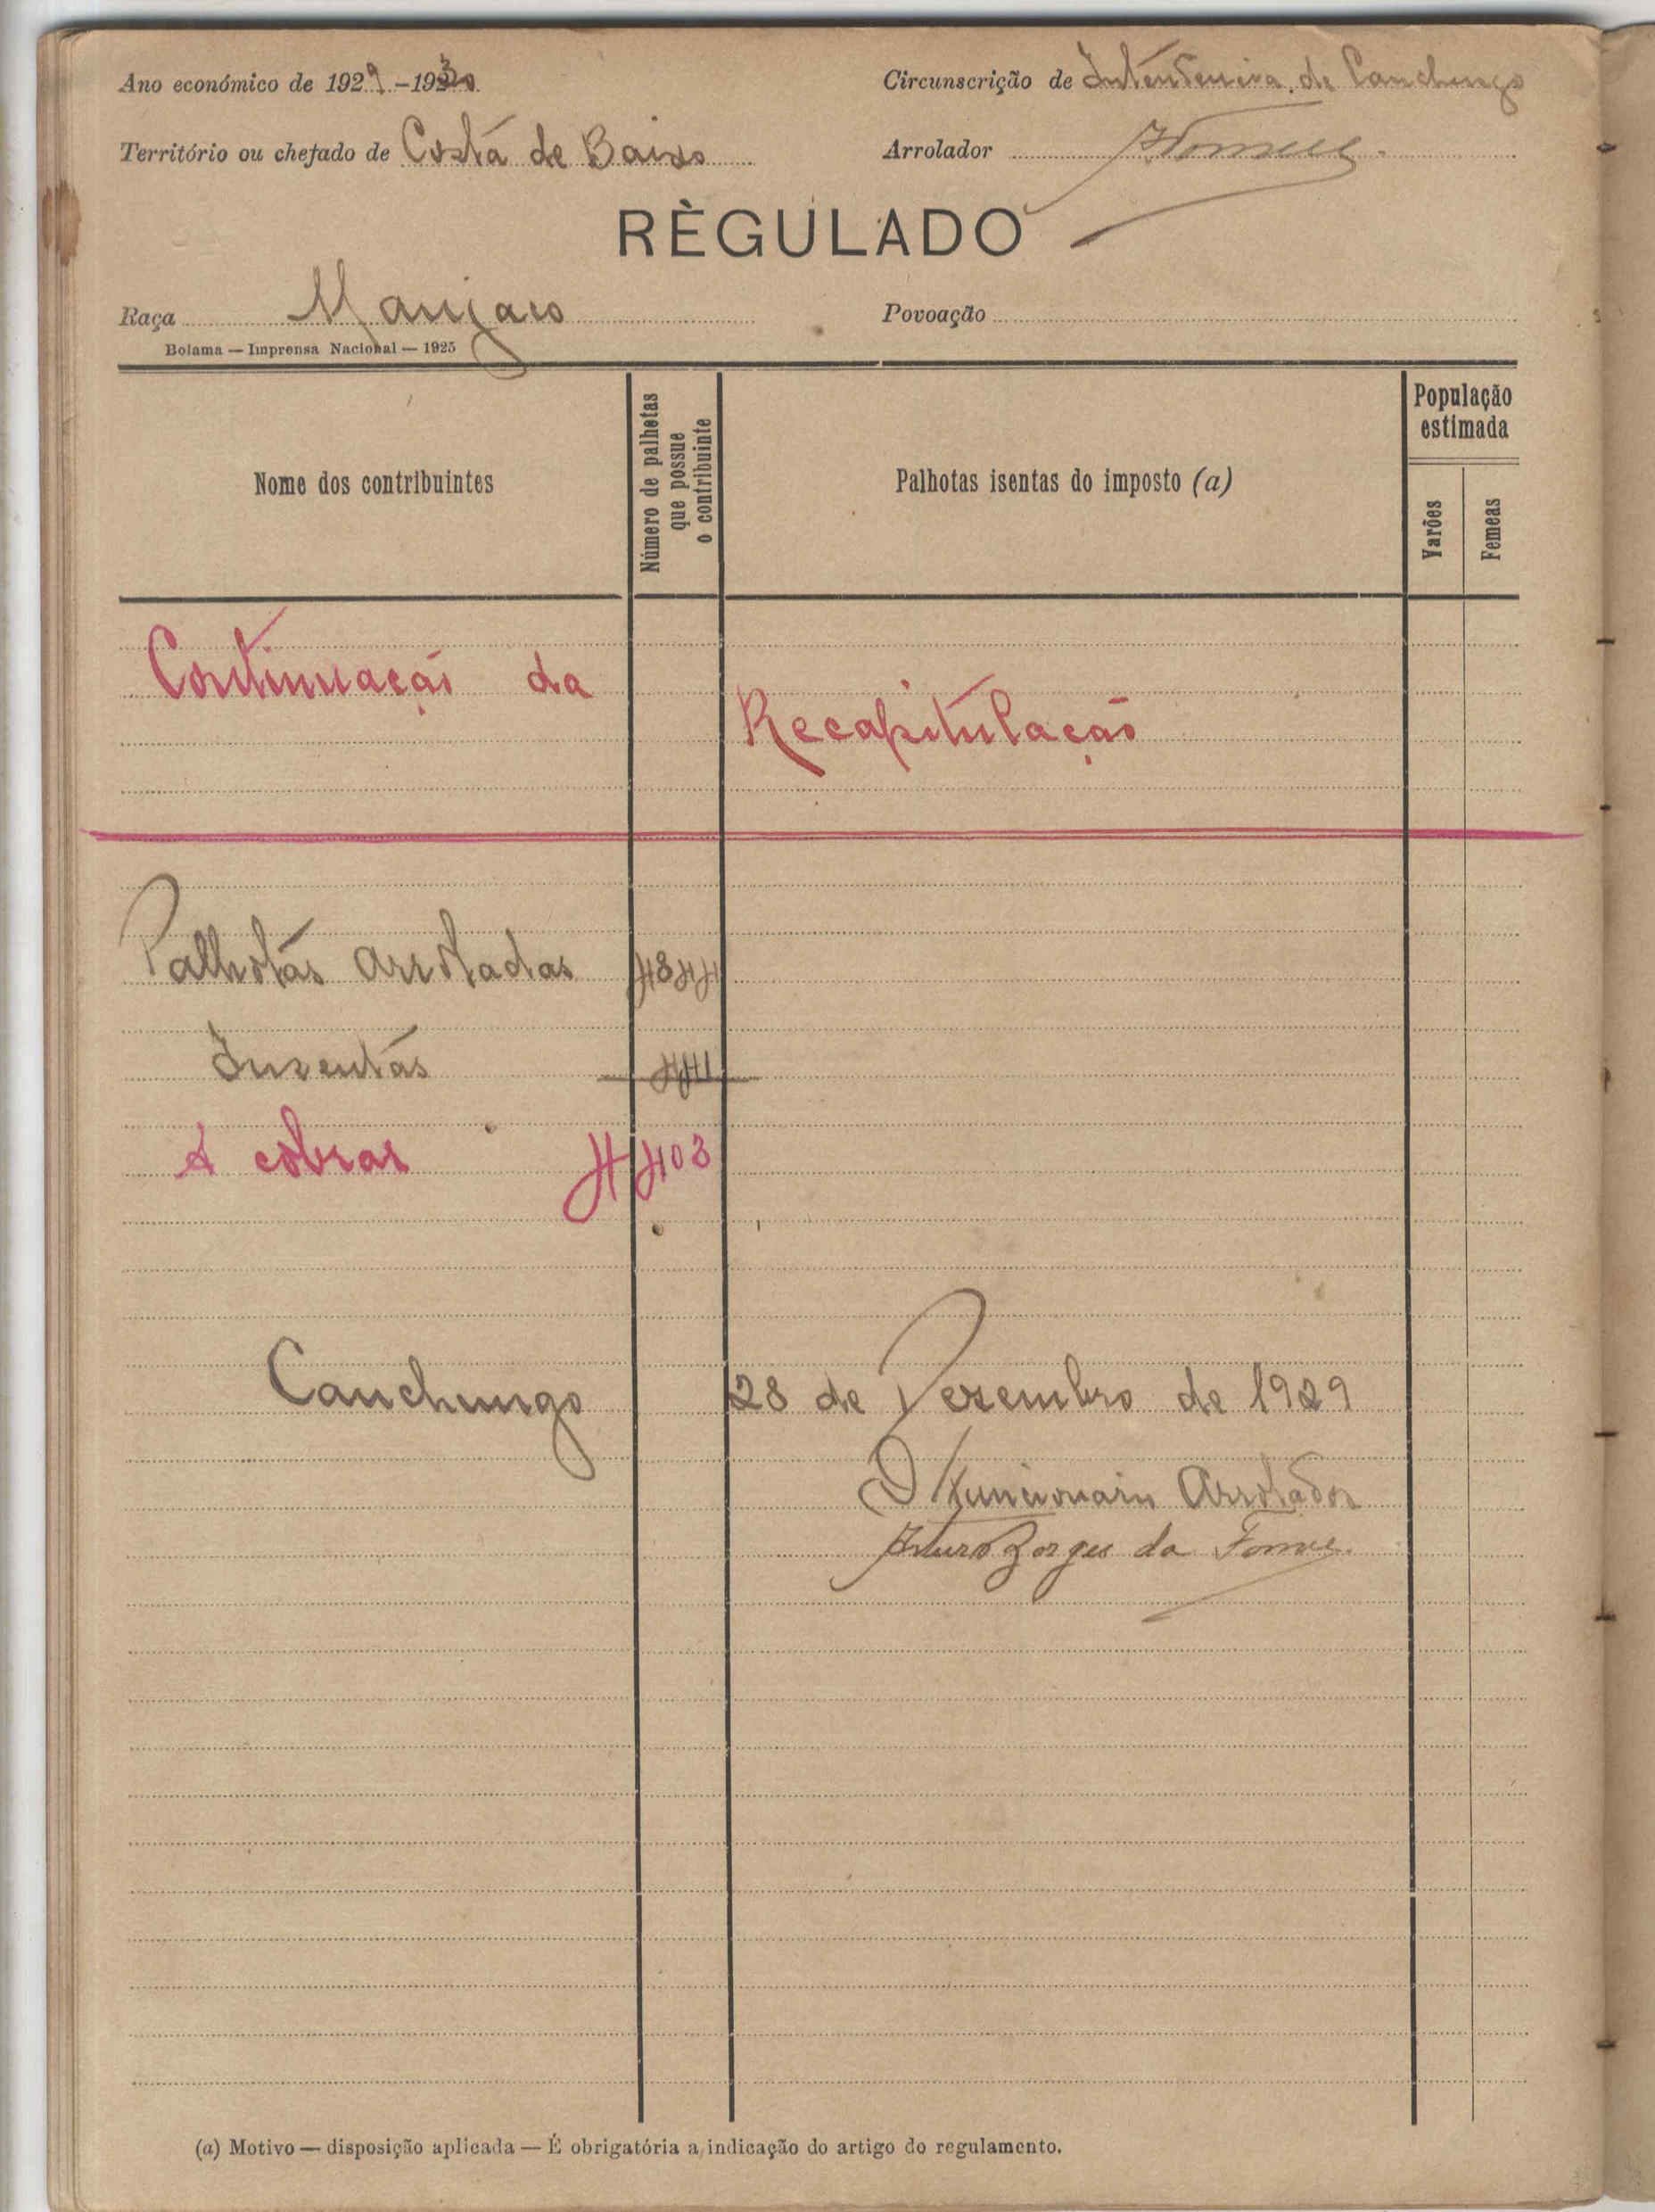 Ano económico de 1929-1930
Circunscrição de Intendencia de Canchungo
Território ou chefado de Costa de Baixo
Arrolador
RÈGULADO
Raça Manjaco
Povoação
Bolama — Imprensa Nacional — 1925
Nome dos contribuintes
Número de palhetas
que possue
o contribuinte
Palhotas isentas do imposto (a)
População
estimada
Varões
Femeas
Continuação da
Recapitulação
Palhotas Arroladas 4844
Inzentas 441
A cobrar 4403
Canchungo 28 de Dezembro de 1929
O Funcionario Arrolador
Arturo Borges da
(a) Motivo — disposição aplicada — É obrigatória a indicação do artigo do regulamento.